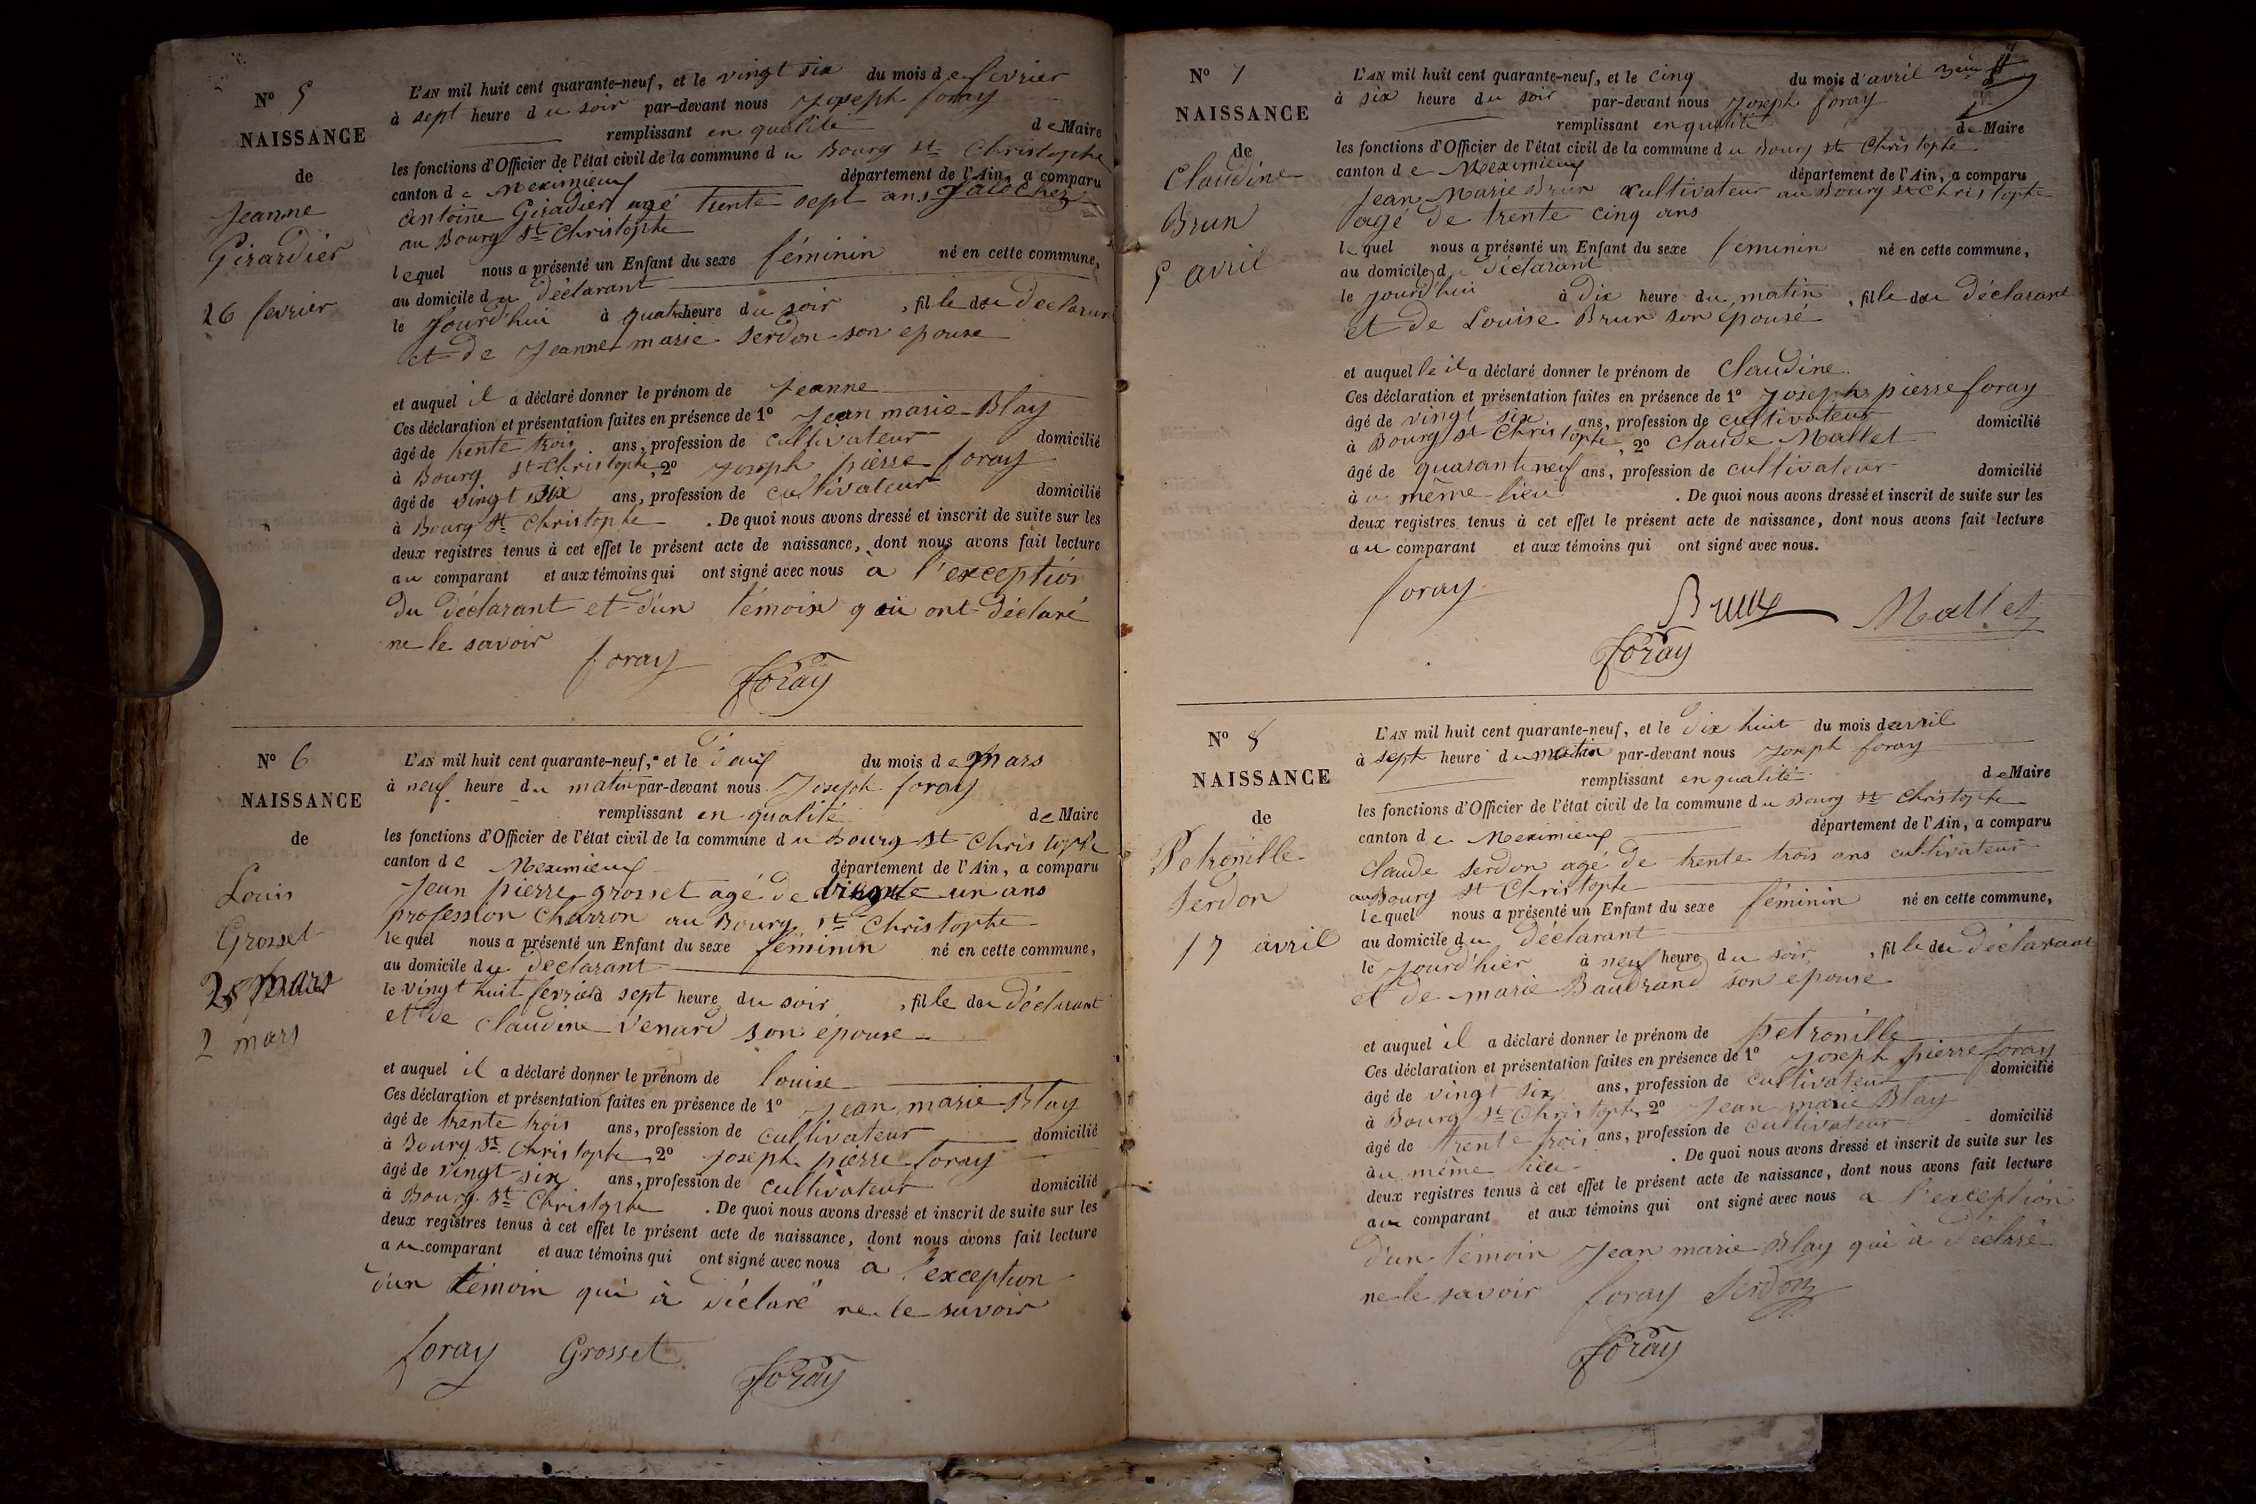 N° 5
NAISSANCE
de
Jeanne
Girardier
26 fevrier
L'AN mil huit cent quarante-neuf, et le vingt six du mois de fevrier
à sept heure du soir par-devant nous Joseph foray
remplissant en qualité de Maire
les fonctions d'Officier de l'état civil de la commune du Bourg St Christophe
canton de Meximieux département de l'Ain, a comparu
antoine Girardier agé trente sept ans
au Bourg St Christophe
lequel nous a présenté un Enfant du sexe féminin né en cette commune,
au domicile du déclarant
le Jourd'hui à quatre heure du soir, fille du declarant
et de Jeanne marie Serdon son epouse
et auquel il a déclaré donner le prénom de Jeanne
Ces déclaration et présentation faites en présence de 1° Jean marie Blay
âgé de trente trois ans, profession de cultivateur domicilié
à Bourg St Christophe, 2° Joseph pierre foray
âgé de vingt six ans, profession de cultivateur domicilié
à Bourg St Christophe. De quoi nous avons dressé et inscrit de suite sur les
deux registres tenus à cet effet le présent acte de naissance, dont nous avons fait lecture
au comparant et aux témoins qui ont signé avec nous à l'exception
du déclarant et d'un témoin qui ont déclaré
ne le savoir
foray
foray
N° 6
NAISSANCE
de
Louis
Grosset
2 mars
L'AN mil huit cent quarante-neuf, et le du mois de Mars
à neuf heure du matin par-devant nous Joseph foray
remplissant en qualité de Maire
les fonctions d'Officier de l'état civil de la commune du Bourg St Christophe
canton de Meximieux département de l'Ain, a comparu
Jean pierre grosset agé de un ans
profession charron au Bourg St Christophe
lequel nous a présenté un Enfant du sexe féminin né en cette commune,
au domicile du declarant
le vingt huit fevrier à sept heure du soir, fille du déclarant
et de claudine Venard son epouse
et auquel il a déclaré donner le prénom de louise
Ces déclaration et présentation faites en présence de 1° Jean marie Blay
âgé de trente trois ans, profession de cultivateur domicilié
à Bourg St Christophe, 2° Joseph pierre foray
âgé de vingt six ans, profession de cultivateur domicilié
à Bourg St Christophe. De quoi nous avons dressé et inscrit de suite sur les
deux registres tenus à cet effet le présent acte de naissance, dont nous avons fait lecture
au comparant et aux témoins qui ont signé avec nous à l'exception
d'un témoin qui à déclaré ne le savoir
foray Grosset
foray
N° 7
NAISSANCE
de
Claudine
Brun
5 avril
L'AN mil huit cent quarante-neuf, et le cinq du mois d'avril
à six heure du soir par-devant nous Joseph foray
remplissant en qualité de Maire
les fonctions d'Officier de l'état civil de la commune du Bourg St Christophe
canton de Meximieux département de l'Ain, a comparu
Jean Marie Brun cultivateur au Bourg St Christophe
agé de trente cinq ans
lequel nous a présenté un Enfant du sexe féminin né en cette commune,
au domicile d déclarant
le Jourd'hui à dix heure du matin, fille du déclarant
et de Louise Brun son epouse
et auquel le il a déclaré donner le prénom de Claudine
Ces déclaration et présentation faites en présence de 1° Joseph pierre foray
âgé de vingt six ans, profession de cultivateur domicilié
à Bourg St Christophe, 2° Claude Mallet
âgé de quarante neuf ans, profession de cultivateur domicilié
à même lieu. De quoi nous avons dressé et inscrit de suite sur les
deux registres tenus à cet effet le présent acte de naissance, dont nous avons fait lecture
au comparant et aux témoins qui ont signé avec nous.
foray Brun Mallet
foray
N° 8
NAISSANCE
de
Petronille
Serdon
17 avril
L'AN mil huit cent quarante-neuf, et le dix huit du mois d'avril
à sept heure du matin par-devant nous Joseph foray
remplissant en qualité de Maire
les fonctions d'Officier de l'état civil de la commune du Bourg St Christophe
canton de Meximieux département de l'Ain, a comparu
Claude Serdon agé de trente trois ans cultivateur
au Bourg St Christophe
lequel nous a présenté un Enfant du sexe féminin né en cette commune,
au domicile du déclarant
le Jourd'hier à neuf heure du soir, fille du déclarant
et de marie Baudrand son epouse
et auquel il a déclaré donner le prénom de petronille
Ces déclaration et présentation faites en présence de 1° Joseph pierre foray
âgé de vingt six ans, profession de cultivateur domicilié
à Bourg St Christophe, 2° Jean marie Blay
âgé de trente trois ans, profession de cultivateur domicilié
àu même lieu. De quoi nous avons dressé et inscrit de suite sur les
deux registres tenus à cet effet le présent acte de naissance, dont nous avons fait lecture
au comparant et aux témoins qui ont signé avec nous à l'exception
d'un témoin Jean marie Blay qui à déclaré
ne le savoir foray Serdon
foray